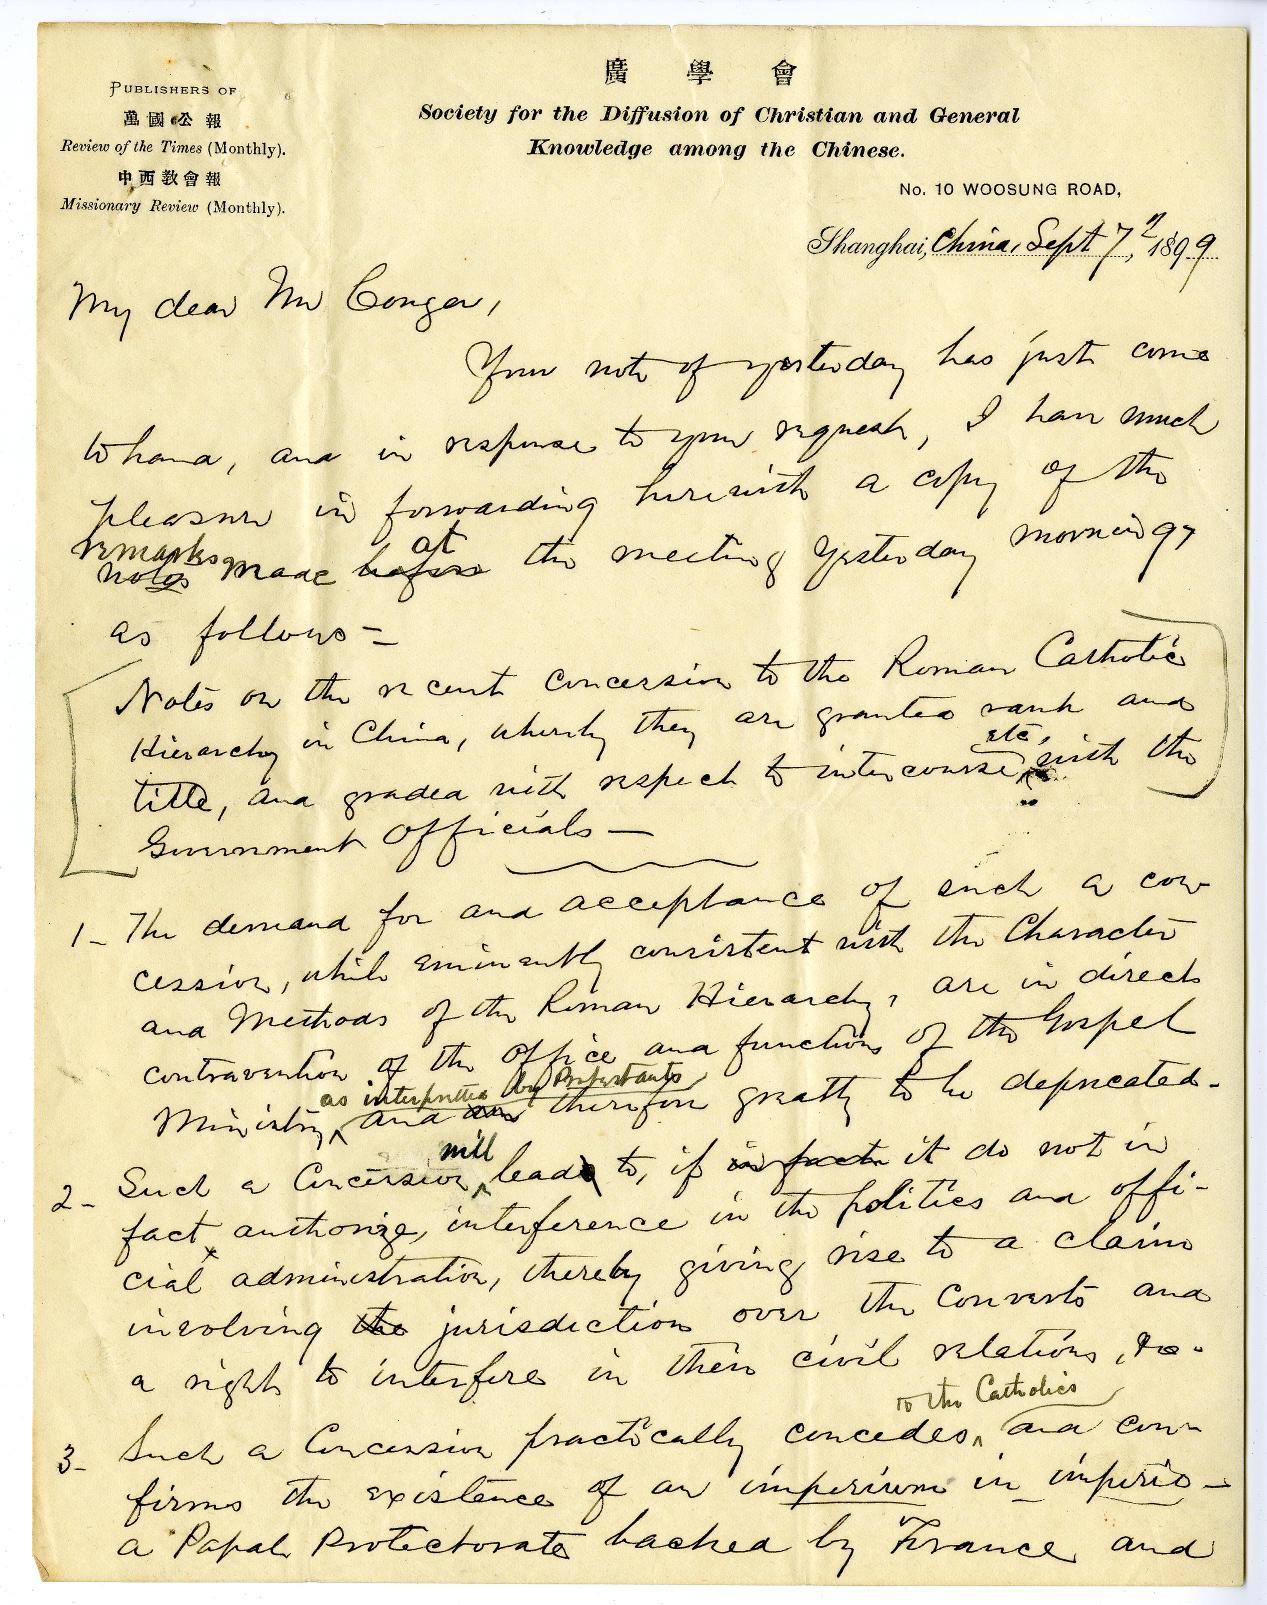 PUBLISHERS OF
萬國公報
Review of the Times (Monthly).
中西教會報
Missionary Review (Monthly).
廣學會
Society for the Diffusion of Christian and General
Knowledge among the Chinese.
No. 10 WOOSUNG ROAD,
Shanghai, China, Sept 7, 1899
My dear Mr Conger,
Your note of yesterday has just come
to hand, and in response to your request, I have much
pleasure in forwarding herewith a copy of the
remarks at
notes made before the meeting yesterday morning,
as follows =
Notes on the recent concession to the Roman Catholic
Hierarchy in China, whereby they are granted rank and
etc,
title, and graded with respect to intercourse with the
Government Officials —
1 - The demand for and acceptance of such a con-
cession, while eminently consistent with the Character
and Methods of the Roman Hierarchy, are in direct
contravention of the office and functions of the Gospel
as interpreted by Protestants
Ministry, and are therefore greatly to be deprecated.
will
2 - Such a Concession leads to, if in fact it do not in
fact authorize, interference in the politics and offi-
cial administration, thereby giving rise to a claim
involving the jurisdiction over the Converts and
a right to interfere in their civil relations,
to the Catholics
3 - Such a Concession practically concedes, and con-
firms the existence of an imperium in imperio -
a Papal Protectorate backed by France and